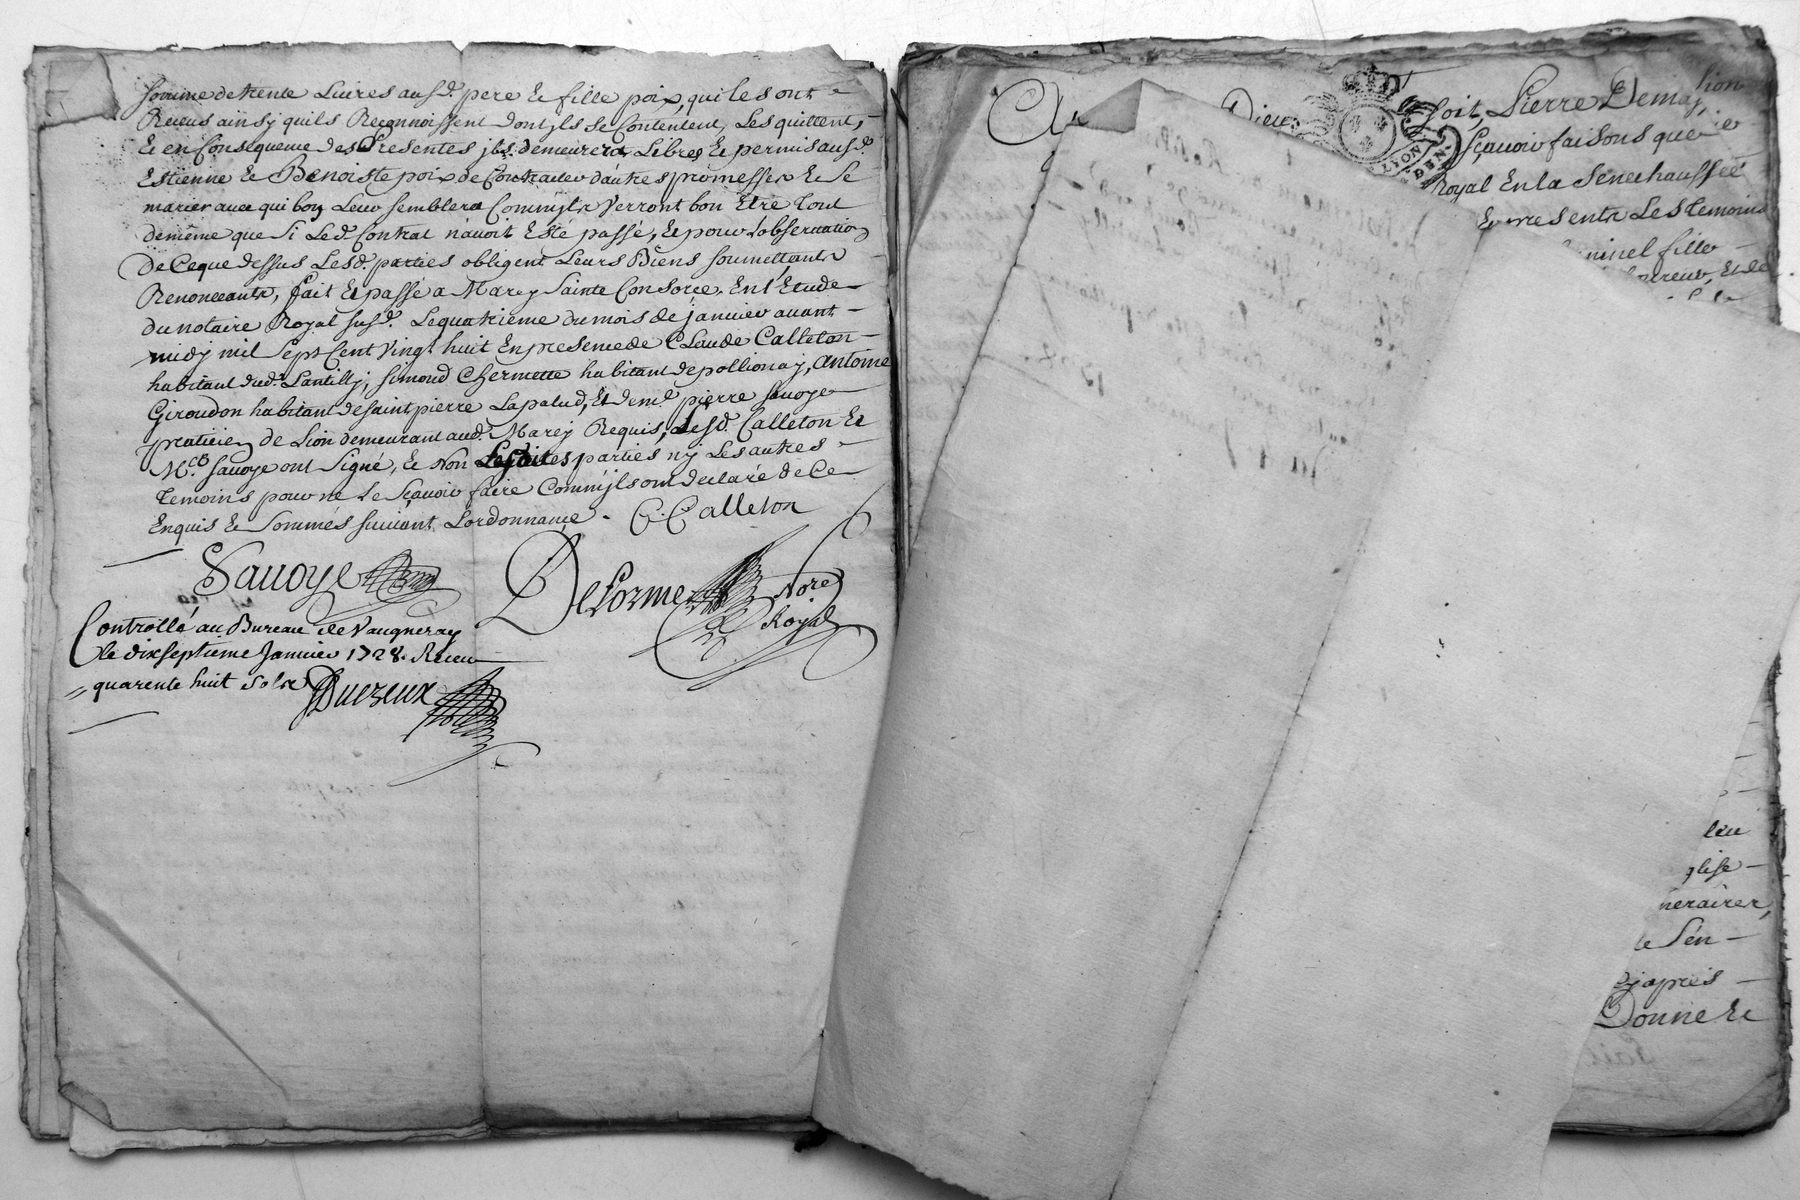 somme de trente Livres ausd. pere Et fille poix, qui les ont
Receus ainsy quils Reconnoissent dont jls Se Contentent, Les quittent,
Et en Consequence des Presentes jls demeurera Libres Et permis ausd.
Estienne Et Benoiste poix de Contracter dautres promesses Et Se
marier avec qui bon Leur semblera Comm'jls Verront bon Etre tout
demême que Si Led. Contrat n'avoit Este passé, Et pour l'observation
De Ceque dessus Lesd. parties obligent Leurs Biens soumettants
Renonceants, fait Et passé a Marcy Sainte Consorce En l'Etude
du notaire Royal susd. Le quatrieme du mois de janvier avant
midy mil Sept Cent Vingt huit En presence de Claude Calleton
habitant dud. Lantilly, simond Chermette habitant de pollionay, Antoine
Giroudon habitant de saint pierre Lapalud, Et de me. pierre savoye
praticien de Lion demeurant aud. Marcy Requis, Lesd. Calleton Et
Me. savoye ont Signé, Et Non Lesdites parties ny Les autres
temoins pour ne Le Sçavoir faire Comm'jls ont declaré de Ce
Enquis Et Sommés suivant L'ordonnance. C. Calleton
Savoye
DeLorme Nore
Royal
Controllé au Bureau de Vaugneray
le dixseptieme Janvier 1728. Receu
quarente huit sols Duezeux
Dieu
soit, Pierre Demag
Sçavoir faisons que
LYON
Royal En la Senechaussée
presents Les temoins
fille
Et de
leu
glise
neraires,
te Sen
cy apres
Donne Et